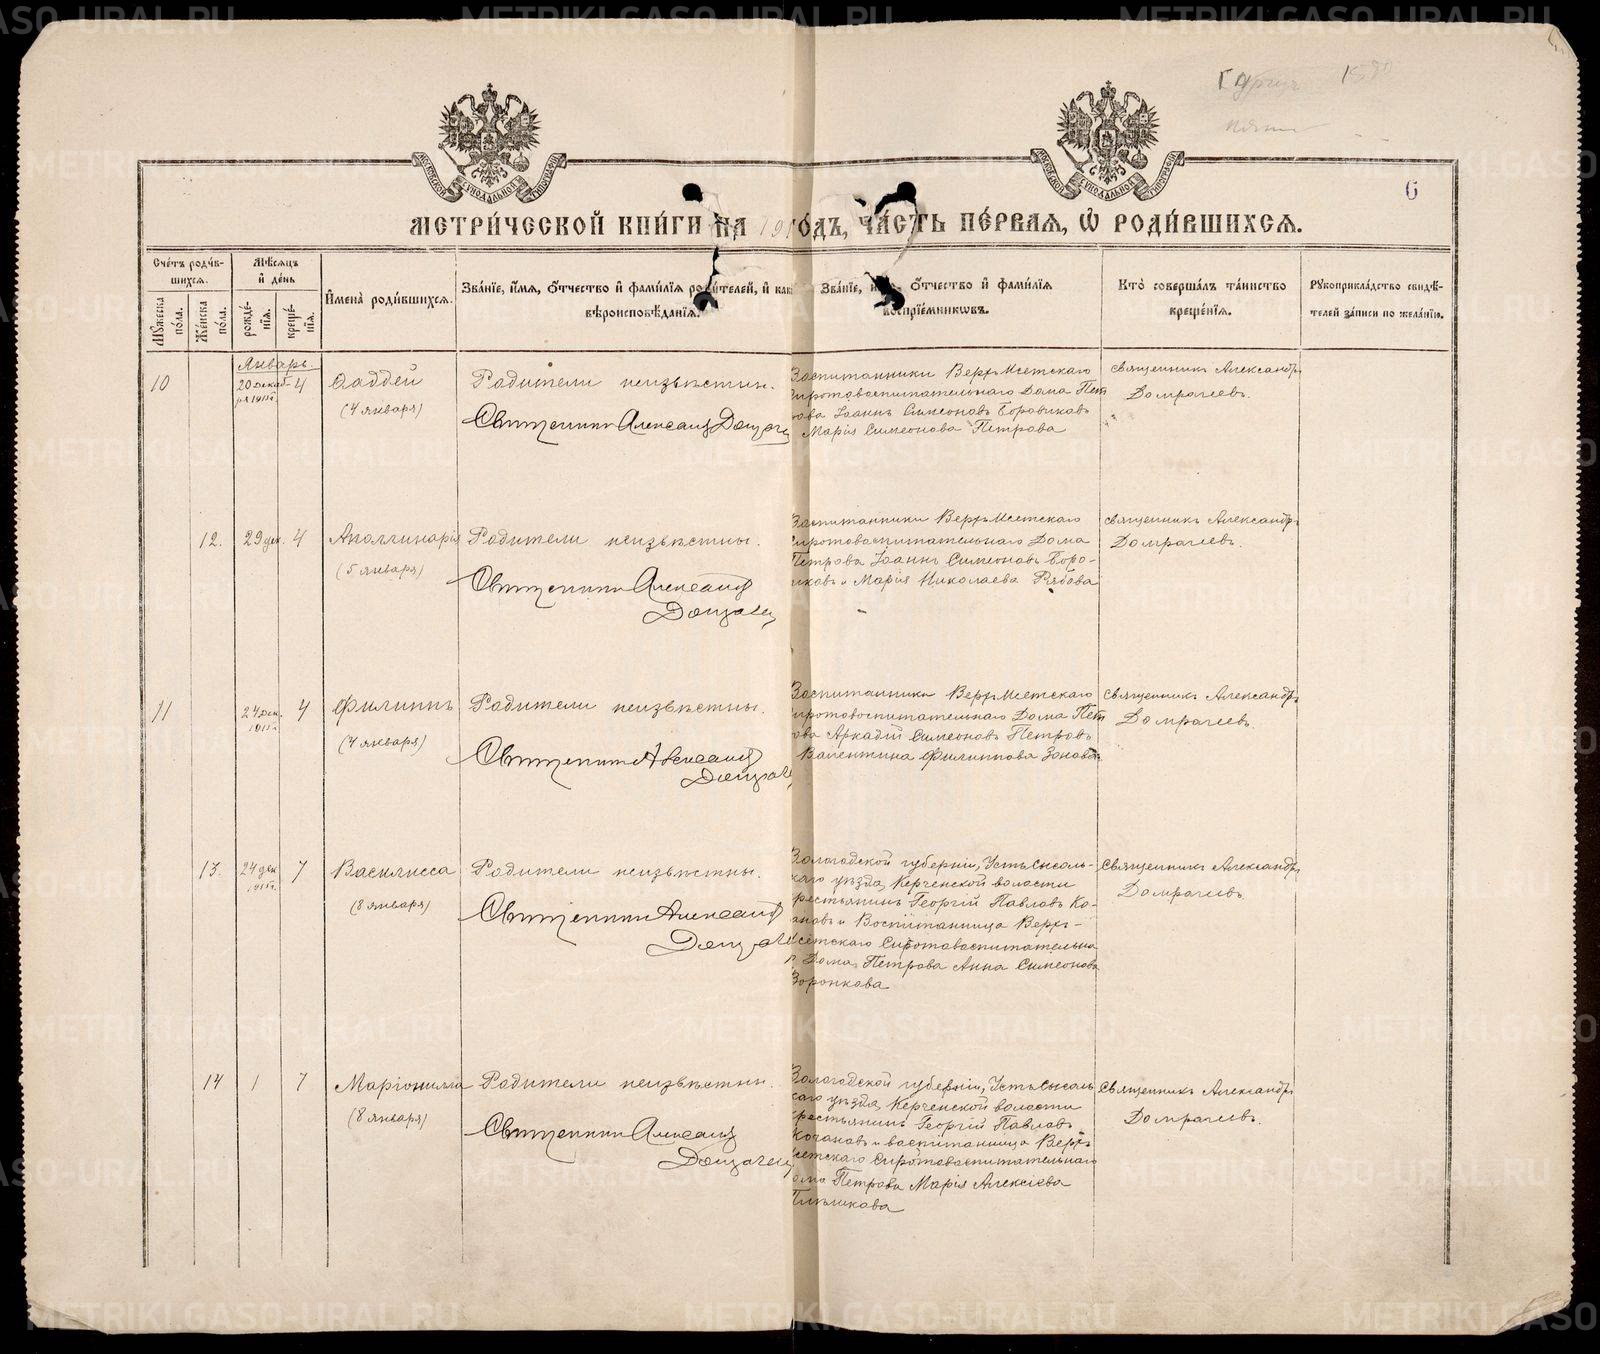 METRIKI.GASO-URAL.RU
МОСКОВСКОЙ СУНОДАЛЬНОЙ ТИПОГРАФІИ
МОСКОВСКОЙ СУНОДАЛЬНОЙ ТИПОГРАФІИ
6
МЕТРИ́ЧЕСКОЙ КНИ́ГИ НА 191 ГО́ДЪ, ЧА́СТЬ ПЕ́РВАЯ, Ѡ РОДИ́ВШИХСЯ.
Сче́тъ роди́вшихся.
Му́жеска по́ла.
Же́нска по́ла.
Мѣ́сяцъ и де́нь
рожде́нія.
креще́нія.
Имена̀ роди́вшихся.
Зва́ніе, и́мя, о́тчество и фами́лія роди́телей, и как
вѣроисповѣ́данія.
Зва́ніе, и о́тчество и фами́лія
воспріе́мниковъ.
Кто̀ соверша́лъ та́инство
креще́нія.
Рукоприкла́дство свидѣ́-
телей за́писи по жела́нію.
Январь.
10
20 декаб-
ря 1911 г.
4
Фаддей
(4 января)
Родители неизвѣстны.
Священникъ Александръ Домрачев
Воспитанники Верхъ-Исетскаго
Сиротовоспитательнаго Дома Пет
рова Іоаннъ Симеоновъ Боровиковъ
Марія Симеонова Петрова
Священникъ Александръ
Домрачевъ.
12.
29 дек.
4
Аполлинарія
(5 января)
Родители неизвѣстны.
Священникъ Александръ
Домрачевъ
Воспитанники Верхъ-Исетскаго
Сиротовоспитательнаго Дома
Петрова Іоаннъ Симеоновъ Боро-
виковъ и Марія Николаева Рябова
Священникъ Александръ
Домрачевъ.
11
24 дек.
1911 г.
4
Филиппъ
(4 января)
Родители неизвѣстны.
Священникъ Александръ
Домрачев
Воспитанники Верхъ-Исетскаго
Сиротовоспитательнаго Дома Пет
рова Аркадій Симеоновъ Петровъ
Валентина Филиппова Зонова
Священникъ Александръ
Домрачевъ
13.
24 дек
1911 г.
7
Василисса
(8 января)
Родители неизвѣстны.
Священникъ Александръ
Домрачев
Вологодской губерніи, Усть-Сысоль-
скаго уѣзда, Керченской волости
крестьянинъ Георгій Павловъ Ко-
чановъ и Воспитанница Верхъ-
Исетскаго Сиротовоспитательна
го Дома Петрова Анна Симеонова
Воронкова
Священникъ Александръ
Домрачевъ.
14
1
7
Маріонилла
(8 января)
Родители неизвѣстны.
Священникъ Александръ
Домрачевъ
Вологодской губерніи, Усть-Сысоль
скаго уѣзда, Керченской волости
крестьянинъ Георгій Павловъ
Кочановъ и воспитанница Верхъ
Исетскаго Сиротовоспитательнаго
Дома Петрова Марія Алексіева
Священникъ Александръ
Домрачевъ.